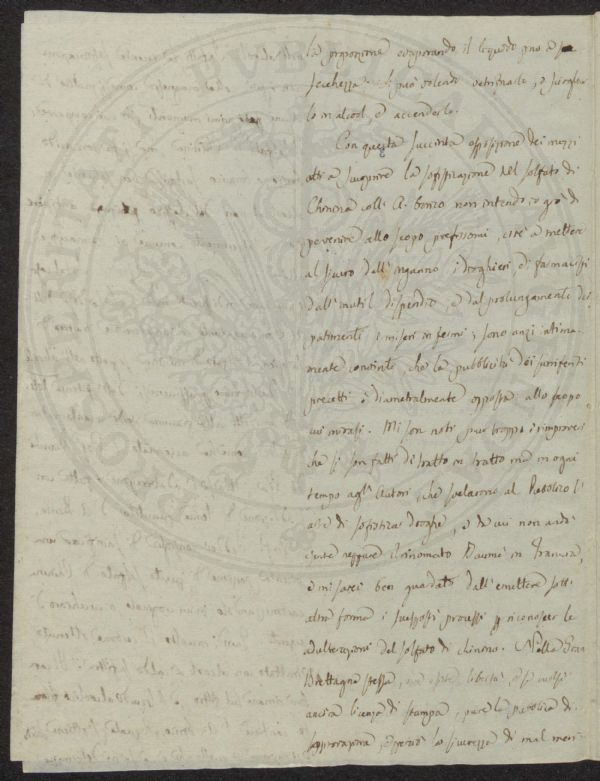 la proporzione evaporando il liquido fino a
secchezza. Si può volendo
lo in alcool, e accenderlo.
Con questa succinta esposizione dei mezzi
atti a scuoprire la sofisticazione del solfato di
Chinina coll' A. borico non intendo io già di
pervenire allo scopo prefissomi, cioè a metter
al sicuro dall' inganno i droghieri, i farmacisti
dall' inutil dispendio, e dal prolungamento dei
patimenti i miseri infermi; sono anzi intima-
mente convinto che la pubblicità dei surriferiti
precetti è diametralmente opposta allo scopo
cui mirasi. Mi son noti pur troppo i rimproveri
che si son fatti di tratto in tratto ed in ogni
tempo agli Autori, che svelarono al Pubblico l'
arte di sofisticar droghe, e da cui non andò
esente neppure il rinomato Baumé in Francia,
e mi sarei ben guardato dall' emettere sott'
altra forma i suesposti processi p riconoscer le
adulterazioni del solfato di chinina. Nella Gran
Brettagna stessa, libertà e si vuole
ancora licenza di stampa, pure la pubblica di-
sapprovazione la sicurezza di mal meri-